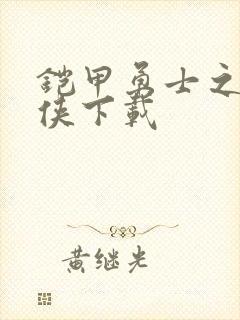 铠甲勇士之
侠下载
黄继光